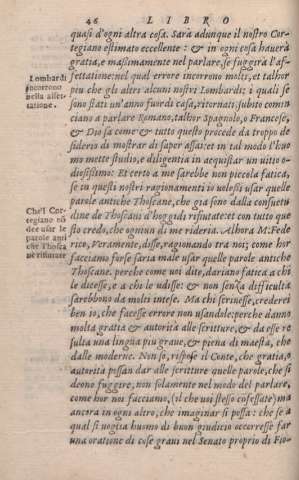 46 LIBRO
quasi d'ogni altra cosa. Sarà adunque il nostro Cor-
tegiano estimato eccellente: & in ogni cosa hauerà
gratia, e massimamente nel parlare, se fuggirà l'af-
fettatione: nel qual errore incorrono molti, et talhor
piu che gli altri alcuni nostri Lombardi: i quali se
sono stati un'anno fuor di casa, ritornati, subito comin
ciano a parlare Romano, talhor Spagnolo, o Francese,
& Dio sa come & tutto questo procede da troppo de
siderio di mostrar di saper assai: et in tal modo l'huo
mo mette studio, e diligentia in acquistar un uitio o-
diosissimo: Et certo a me sarebbe non piccola fatica,
se in questi nostri ragionamenti io uolessi usar quelle
parole antiche Thoscane, che gia sono dalla consuetu
dine de Thoscani d'hoggidi rifiutate: et con tutto que
sto credo, che ogniun di me rideria. Alhora M. Fede
rico, Veramente, disse, ragionando tra noi; come hor
facciamo forse saria male usar quelle parole antiche
Thoscane. perche come uoi dite, dariano fatica a chi
le dicesse, e a chi le udisse: & non senza difficultà
sarebbono da molti intese. Ma chi scriuesse, crederei
ben io, che facesse errore non usandole: perche danno
molta gratia & autorità alle scritture, & da esse re
sulta una lingua piu graue, & piena di maestà, che
dalle moderne. Non so, rispose il Conte, che gratia, o
autorità possan dar alle scritture quelle parole, che si
deono fuggire, non solamente nel modo del parlare,
come hor noi facciamo, (il che uoi stesso cofessate) ma
ancora in ogni altro, che imaginar si possa: che se a
qual si uoglia huomo di buon giudicio occorresse far
una oratione di cose graui nel Senato proprio di Fio-
Lombardi
incorrono
nella affet-
tatione.
Che'l Cor-
tegiano nó
dee usar le
parole anti
che Thosca
ne rifiutate